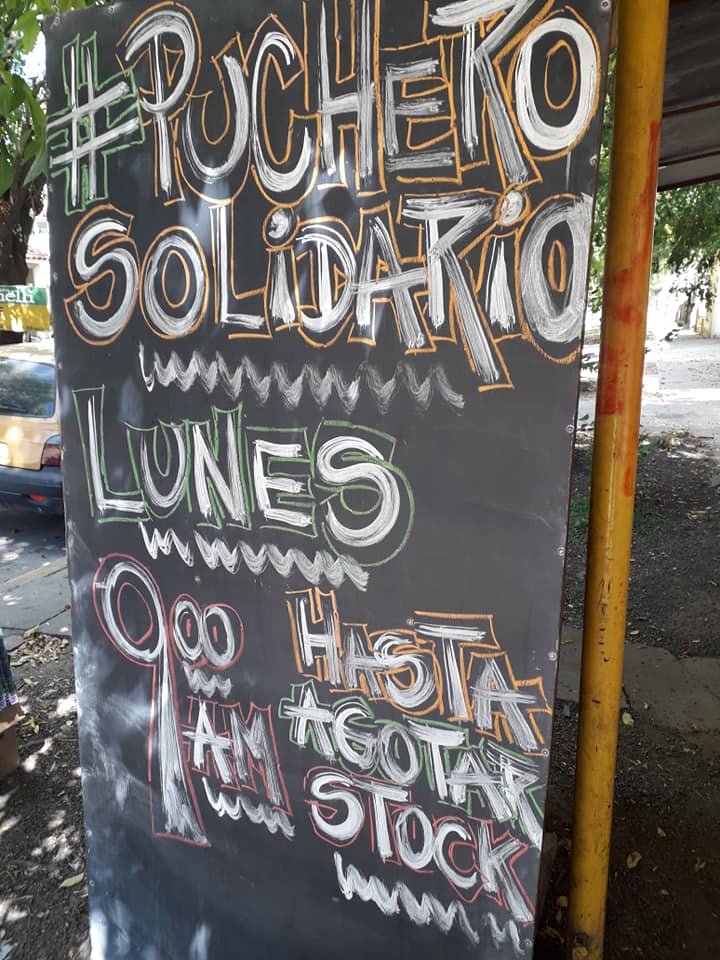 #PUCHERO
SOLIDARIO
LUNES
9 00 AM
HASTA
AGOTAR
STOCK